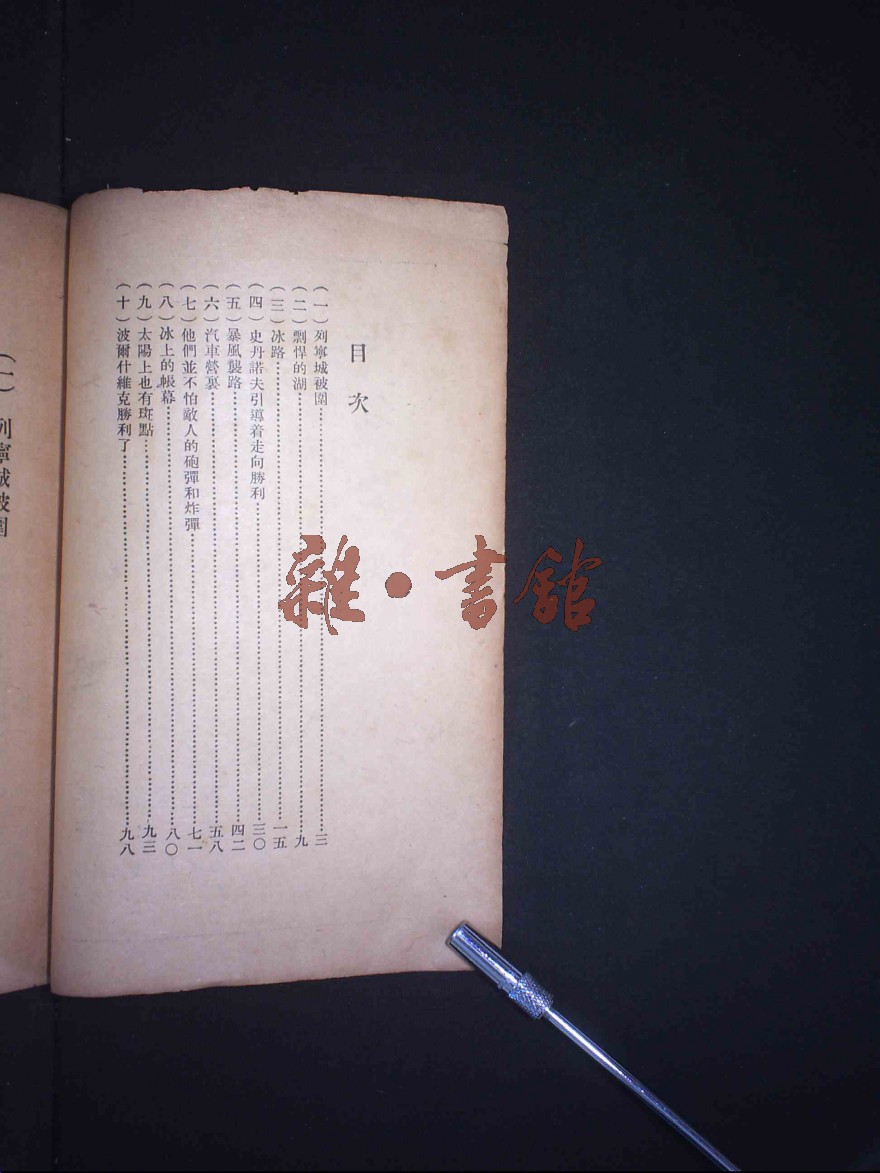 目次
(一)列寧城被圍……三
(二)剽悍的湖……九
(三)冰路……一五
(四)史丹諾夫引導着走向勝利……三〇
(五)暴風製路……四二
(六)汽車營裏……五八
(七)他們並不怕敵人的砲彈和炸彈……七一
(八)冰上的帳幕……八〇
(九)太陽上也有斑點……九三
(十)波爾什維克勝利了……九八
(一)列寧城被圍
雜·書館